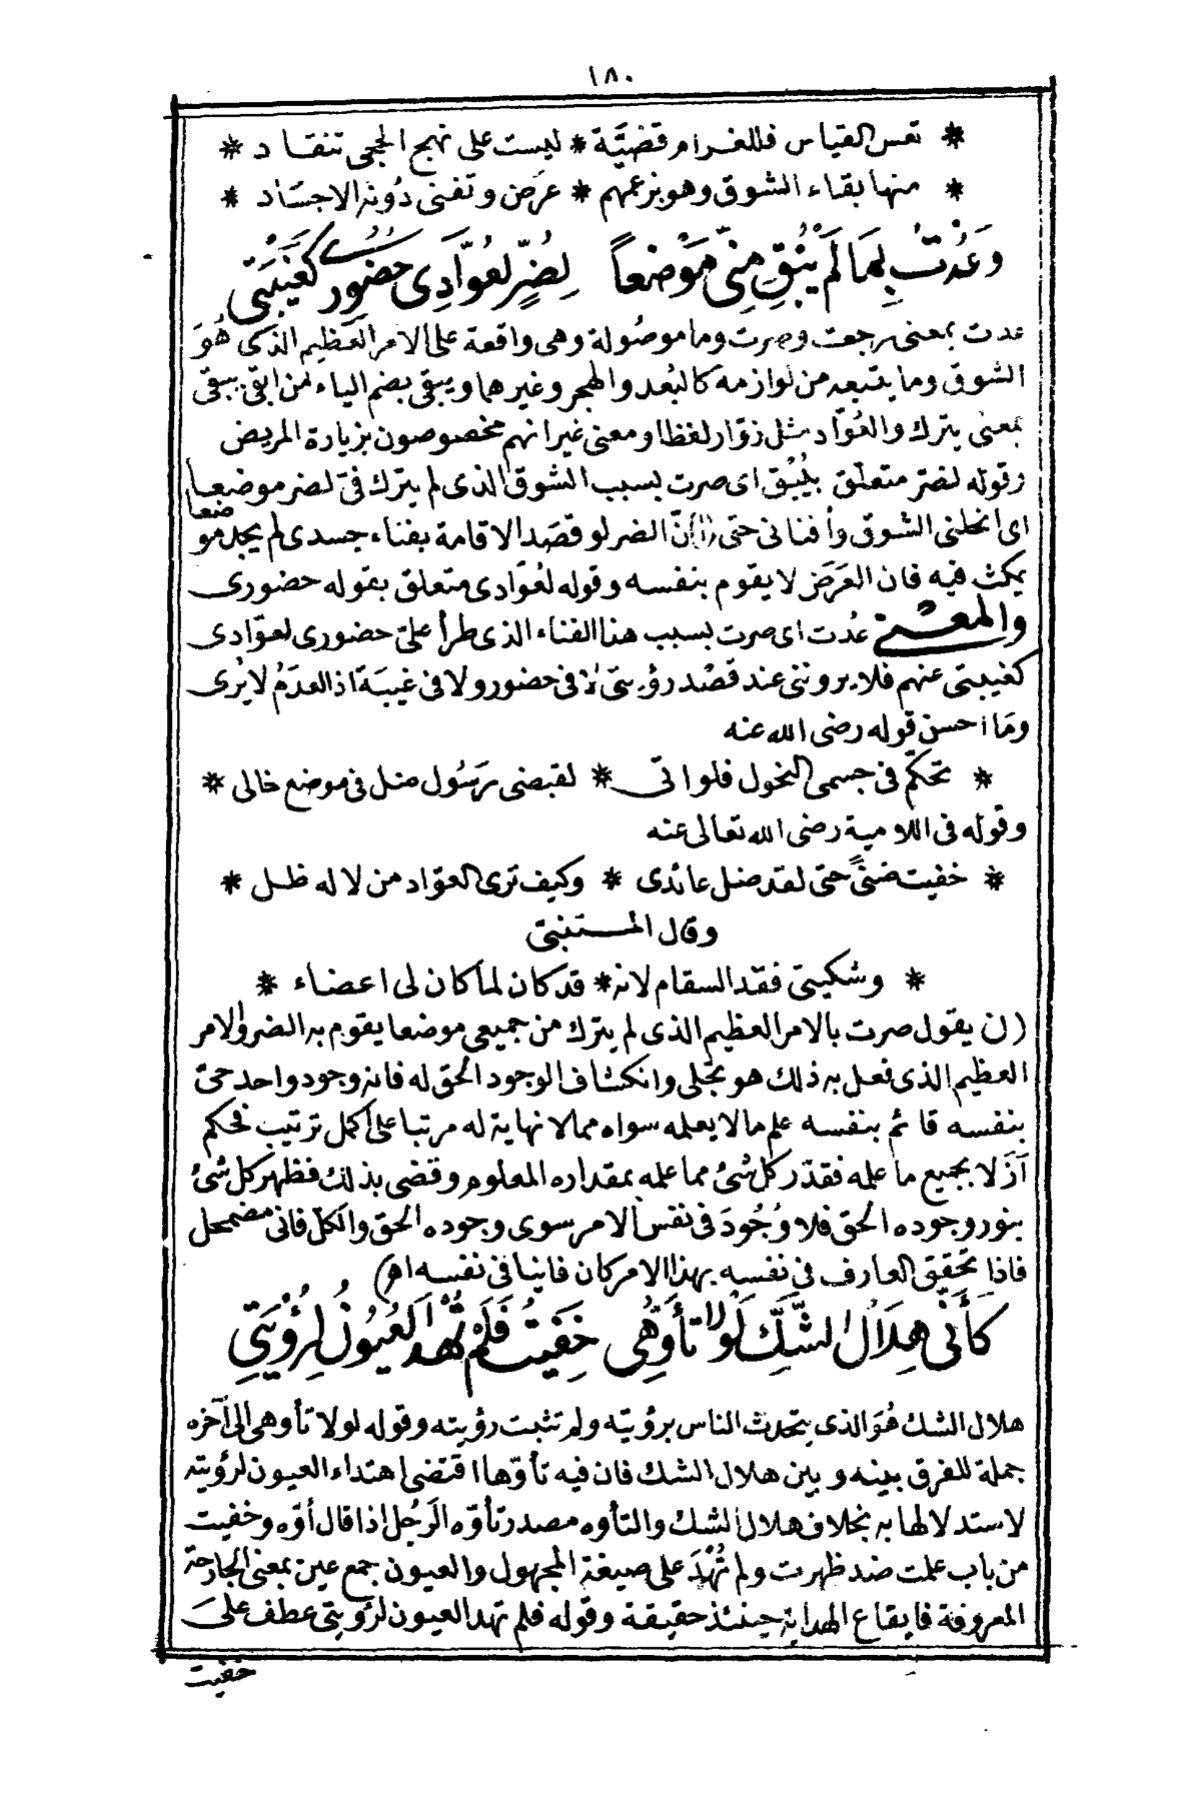 ١٨٠
* تعس القياس فللغرام قضيَّة * ليست على نهج الحجى تنقاد *
* منها بقاء الشوق وهو بزعمهم * عرض وتفنى دُونه الاجسَاد *
وَعُدْتُ بِمَا لَمْ يُبْقِ مِنِّى مَوْضِعاً لِضُرٍّ لعُوَّادِى حضُورِى كغَيْبَتِى
عدت بمعنى رجعت وصرت وما موصُولة وهى واقعة على الامر العَظيم الذى هُوَ
الشوق وما يتبعه من لوازمه كالبُعد والهجر وغيرهما ويبقى بضم الياء من ابقى يبقى
بمعنى يترك والعُوّاد مثل زوّار لفظا ومعنى غير انهم مخصوصون بزيارة المريض
وقوله لضر متعلق بيُبْق اى صرت بسبب الشوق الذى لم يترك فىّ لضر موضعا
اى انحلنى الشوق وأفنانى حتى (ا)نّ الضر لو قصَد الاقامة بفناء جسدى لم يجد موضعا
يمكث فيه فان العَرَض لا يقوم بنفسه وقوله لعُوّادى متعلق بقوله حضورى
والمعْـنى عُدت اى صرت بسبب هذا الفناء الذى طرأ علىّ حضورى لعوّادى
كغيبتى عنهم فلا يروننى عند قصْد رؤيتى لا فى حضور ولا فى غيبَة اذ العدَمُ لا يُرى
ومَا احسن قوله رضى الله عنه
* تحكّم فى جسمى النحول فلو اتى * لقبضى رَسُول ضل فى موضع خالى *
وقوله فى اللامية رضى الله تعالى عنه
* خفيت ضنىً حتى لقد ضل عائدى * وكيف ترى العوّاد من لا له ظل *
وقال المتنبى
* وشكيتى فقد السقام لانه * قد كان لما كان لى اعضاء *
(ن يقول صرت بالامر العظيم الذى لم يترك من جميعى موضعا يقوم به الضر والامر
العظيم الذى فعل به ذلك هو تجلى وانكشاف الوجود الحق له فانه وجود واحد حىّ
بنفسه قائم بنفسه علم ما لا يعلمه سواه مما لا نهاية له مرتبا على أكمل ترتيب فحكم
أزَلا بجميع ما علمه فقدّر كل شئ مما علمه بمقداره المعلوم وقضى بذلك فظهر كل شئ
بنور وجوده الحق فلا وُجُودَ فى نفس الامر سوى وجوده الحق والكل فانى مضمحل
فاذا تحَقق العارف فى نفسه بهذا الامر كان فانيا فى نفسه اهـ)
كَأَنِّى هِلَالُ الشَّكِّ لَوْلَا تَأَوُّهِى خَفِيتُ فَلَمْ تُهْدَ العُيُونُ لِرُؤْيَتِى
هلال الشك هُوَ الذى يتحدث الناس برؤيته ولم تثبت رؤيته وقوله لولا تأوهى الى آخره
جملة للفرق بينه وبين هلال الشك فان فيه تأوّها اقتضى اهتداء العيون لرؤيته
لاستدلالها به بخلاف هلال الشك والتأوه مصدر تأوّه الرَجُل اذا قال أوّه وخفيت
من باب علمت ضد ظهرت ولم تُهْدَ على صيغة المجهول والعيون جمع عين بمعنى الجارحة
المعروفة فايقاع الهداية حينئذ حقيقة وقوله فلم تهد العيون لرؤيتى عطف علىَ
خفيت